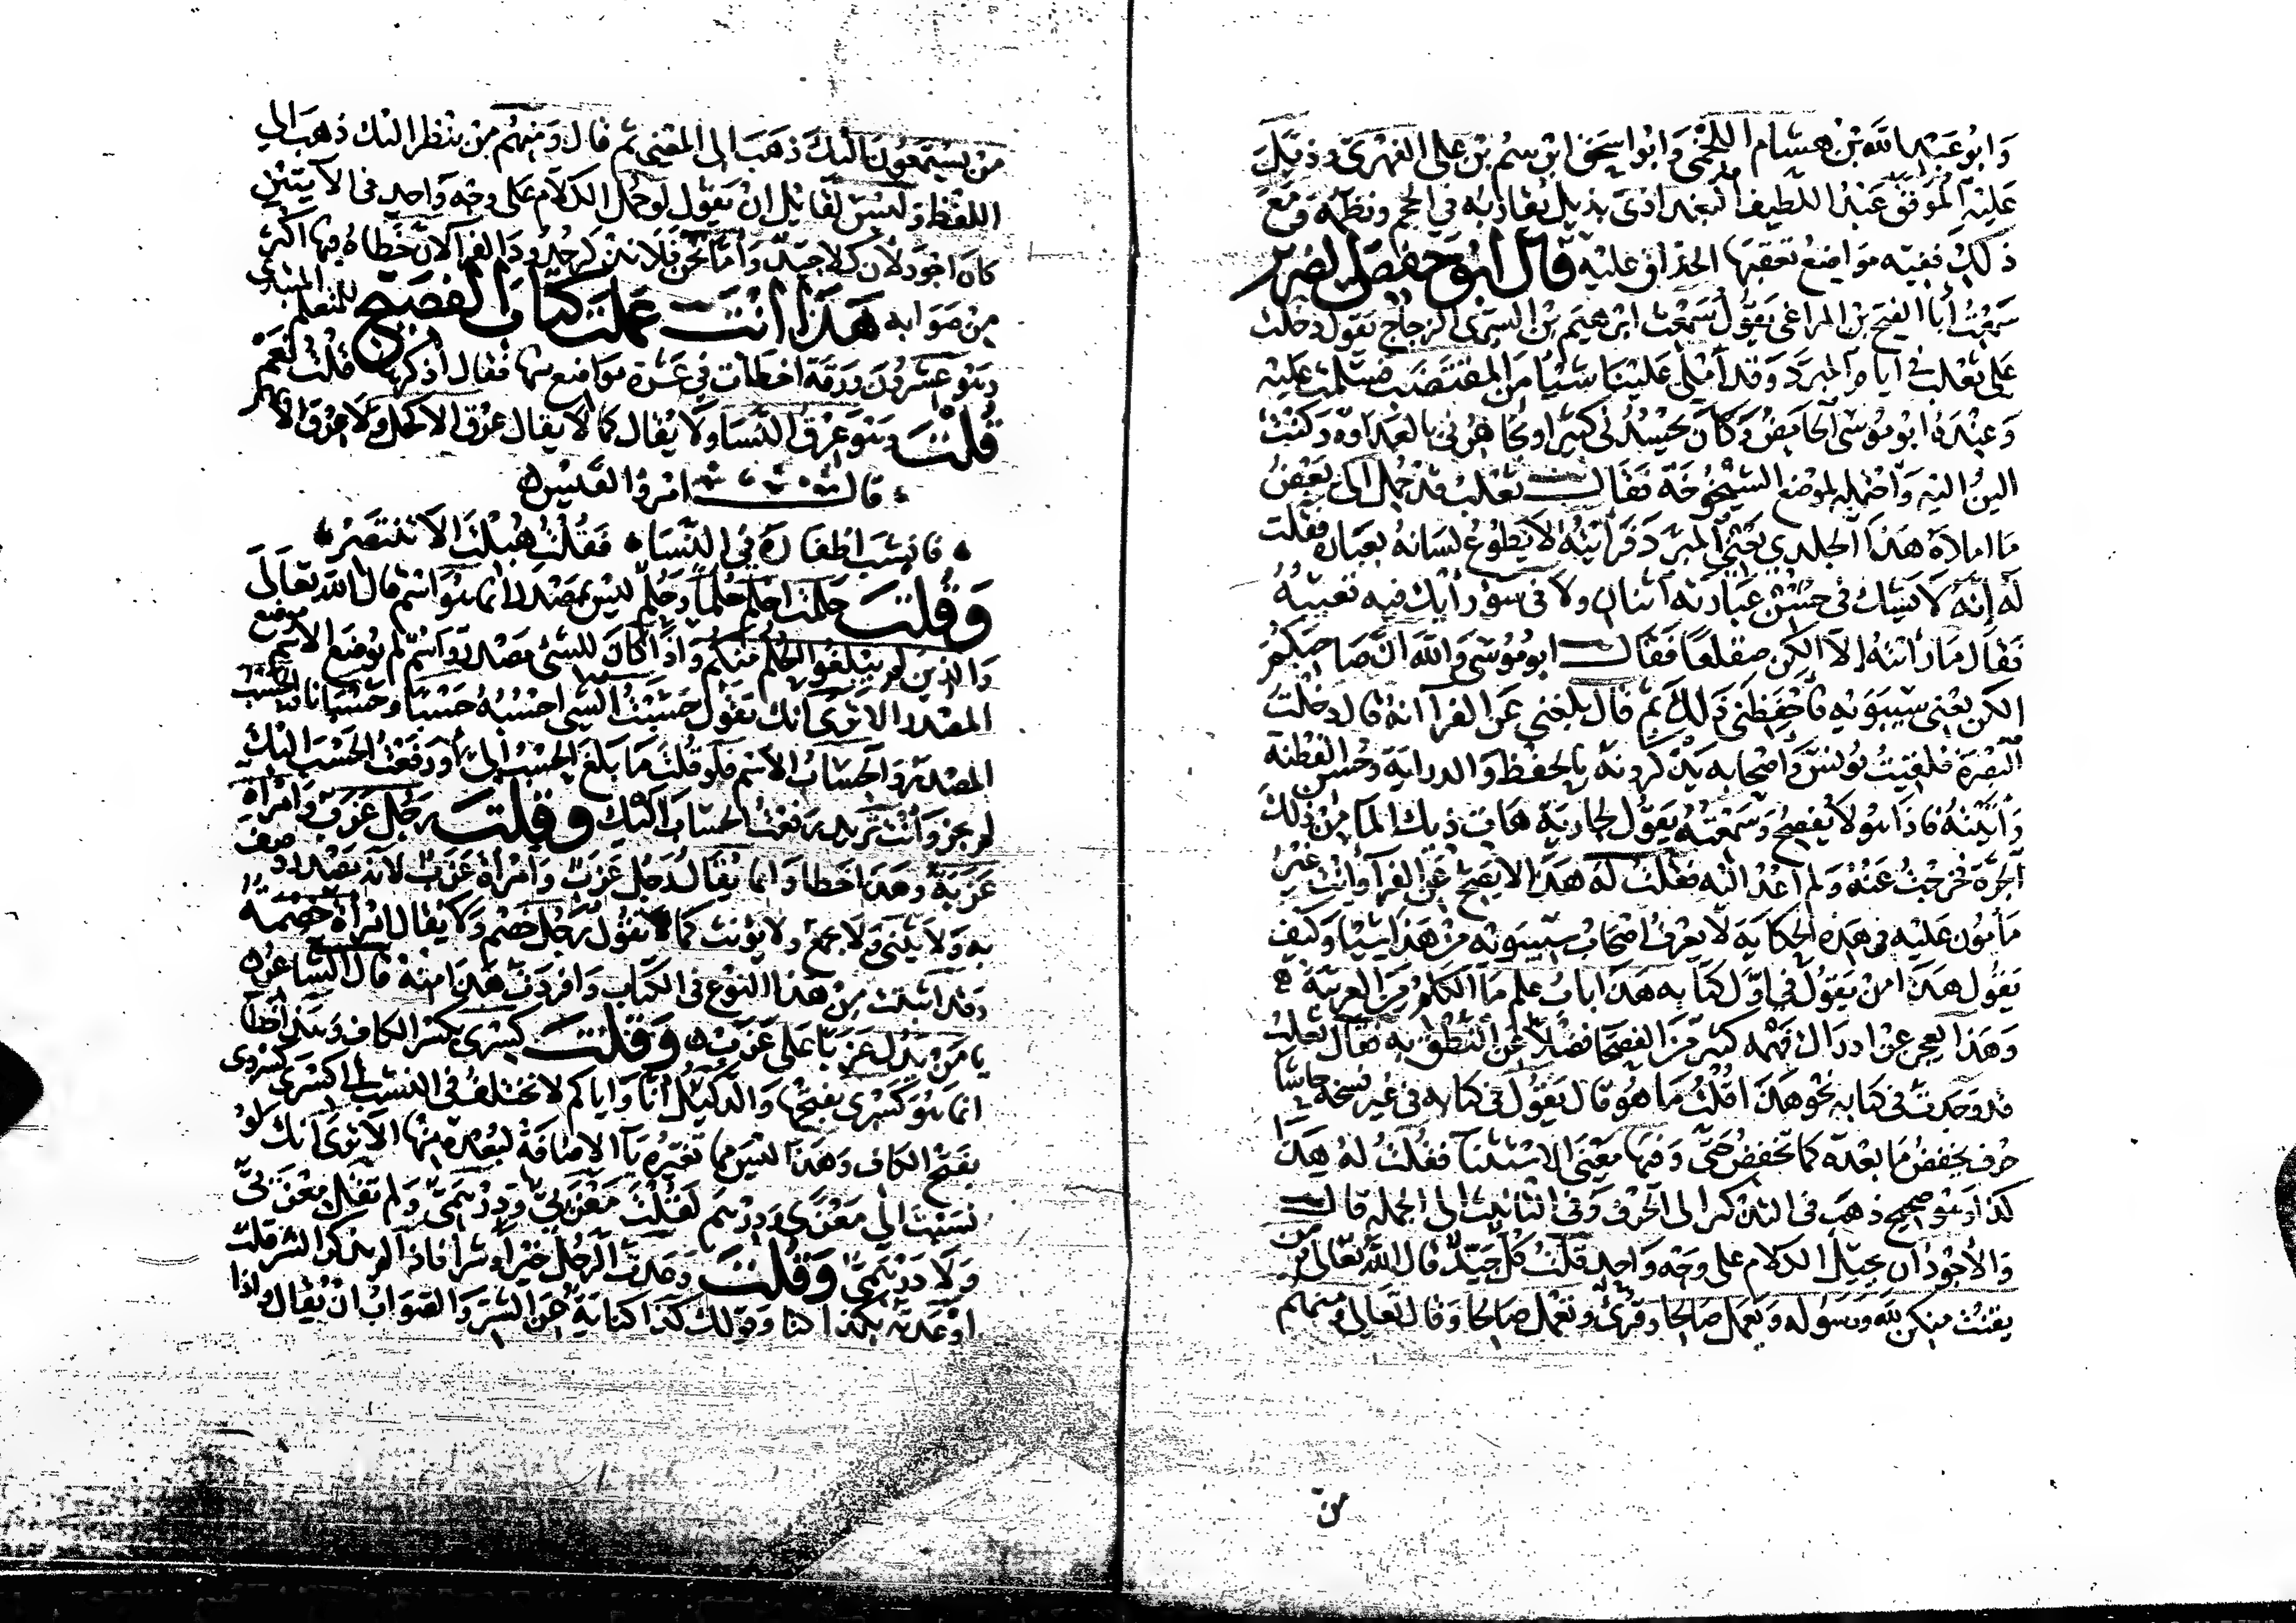 وَابُو عَبْدِ الله بْن هشام اللخمى وَابُوا سحَق ابن سم بْن على الفهرى وذيل
عَليْهِ الموفق عَبْدُ اللطيف البغدادى بذيل يقاربه في الحجم ونظمه ومع
ذلك ففيه مَوَاضِع تعقبها الحذاق عليه قال ابو حفص الضرير
سَمِعْتُ أبا الفتح بن المراغى يَقُول سَمعْت ابرهيم بْن السرى الزجاج يقول دخلت
على ثعلب في ايام المبرد وَقد أملى عَليْنا شيْأ من المقتضب فسلمت عليْه
وَعِنْدهُ ابو مُوسَى الحامض وَكان يحسدنى كثيرا ويجاهرنى بالعداوه وكنت
الين اليه وَاحتمله لموضع الشيخوخة فقال ثعلب قد حمل الى بَعْضُ
مَا املاهُ هَذا الخلدي يَعْني المبرد فرأيتهُ لا يَطُوعُ لسَانهُ بعباره فقلت
لَه إنّه لا يَشك في حسْن عِبَارَته اثنان ولا كن سو رأيك فيه تعيبهُ
فقال مَا رَأيته إلا الكن متقلعًا فقال ابو مُوسَى وَالله ان صَاحبكم
الكن يعنى سيبويه فاحفظنى ذلك ثم قال بلغنى عَن الفرا انهُ قال دخلت
البَصْرَة فلقيتُ يُونس وَأصحابه يذكرونه بالحفظ وَالدراية وحُسن الفطنة
وَأتيْتهُ فاذا هُو لا يفصح وَسَمعتهُ يَقول لجارية هات ذيك الما من ذلك
الجرة فخرجتُ عَنهُ وَلم أعُد اليْه فقلت له هَذا لا يصح عَن الفرا وأنت غَيْر
مَأمون عليْه فى هَذه الحكاية لا يعرف اصحَاب سيبويه من هَذا شيأ وَكيف
يَقول هَذا من يقُول في اوّل كتابه هَذا بابُ علم ما الكلم من العربيّة ه
وَهَذا يعجز عن ادراك فهمه كثير من الفصحا فضلا عن النطق به فقال ثعلب
قد وجدت في كتابه نحو هَذا قلتُ مَا هُو قال يَقُول في كتابه فى غير نسخة حَاشا
حرف يخفض مَا بعده كما تخفض حَتّى وَفيها معْنى الاستثنا فقُلتُ لهُ هَذا
كذا وَهُو صَحيح ذهَبَ فى التذكير الى الحَرْف وَفى التانيث الى الجمله قال
وَالأجْوَدُ ان يحمل الكلام على وَجْه وَاحدٍ قلتُ كل جَيّدٌ قال الله تعالى ومن
يقنت منكن لله وَرسُوله وَيَعمل صَالحا وقرئ وتعمل صَالحا وَقال تعالى وَمنهم
من
من يستمعون اليك ذهَبَ الى المعْنى ثم قال وَمنهُم مَنْ ينظر اليْك ذهَبَ الى
اللفظ وَليْسَ لقائل ان يَقول لو حُمل الكلام على وجْه وَاحِدٍ فى الآيتين
كان اجْوَد لأن كلا جيّد وَأما نحن فلا نذكر حُدود الفرا لان خطاهُ فيها اكثر
من صَوابه هَذا انت عملت كتاب الفصيح للمتعلم المبتدى
وَهو عشرُون وَرَقة اخطأت في عشرة مواضع منها فقال اذكرها قلتُ نَعَمْ
قُلْتَ وَهُو عِرْق النسَا وَلا يُقال كما لا يقال عِرْق الاكحل وَلا عِرْق الابهر
قال امرؤ القيس
فانشبَ اظفاره في النسَا فقُلت هُبلت الا تنتصر
وَقُلْتَ حَلَمْتُ احْلم حُلما وَحُلُم ليْس بمصْدر انما هُو اسْم قال الله تعَالى
وَالذين لم يبلغوا الحُلم منكم وَاذا كان للشى مَصْدر وَاسْم لم يوضع الاسم موضع
المصْدر الا ترى انك تقول حَسَبْتُ الشى احسبُه حَسبًا وحُسْبانا وَالحَسْب
المصْدر وَالحسَابُ الاسم فلو قلتَ مَا بلغ الحَسْبُ إلى أو رفعْتُ الحَسْب اليْك
لم يجز وَأنت تريد رَفعْت الحسَاب اليك وقلتَ رَجُل عَزَب وَامْرَأة
عَزبة وَهَذا خطا وَانما يُقال رَجُل عَزَب وَامْرأة عَزَب لانه مَصْدر وصف
به وَلا يُثنى وَلا يجمع ولا يؤنث كما لا تقول رَجُل خصْم وَلا يقال امْرأة خصْمَة
وَقد اثبت من هَذا النوع فى الكتاب وَافردت هَذا منه قال الشاعر ه
يا مَنْ يَدُل عزبًا عَلى عَزَب ه وَقلْتَ كِسْرى بكسْر الكاف وَهَذا خطأ
انما هُو كَسْرى بفتحها وَالدليل أنا وَاياكم لا نختلف فى النسب الى كسْرى كسْروى
بفتح الكاف وَهَذا ليس مما تغيرهُ يَا الاضافة لبُعده منها الا ترَى انك لو
نسَبْتَ الى مَعْزى وَدِرْهَم لقُلتَ مَعْزى وَدِرْهَمىّ وَلم تقل مَعْزىّ
وَلا دَرْهَمىّ وَقُلتَ وَعَدت الرجُل خيرا وَشَرا فاذا لم تذكر الشر قلت
اوْعَدته بكذا كذا وَقولك كذا كناية عَن الشر وَالصَوابُ ان يُقال وَاذا